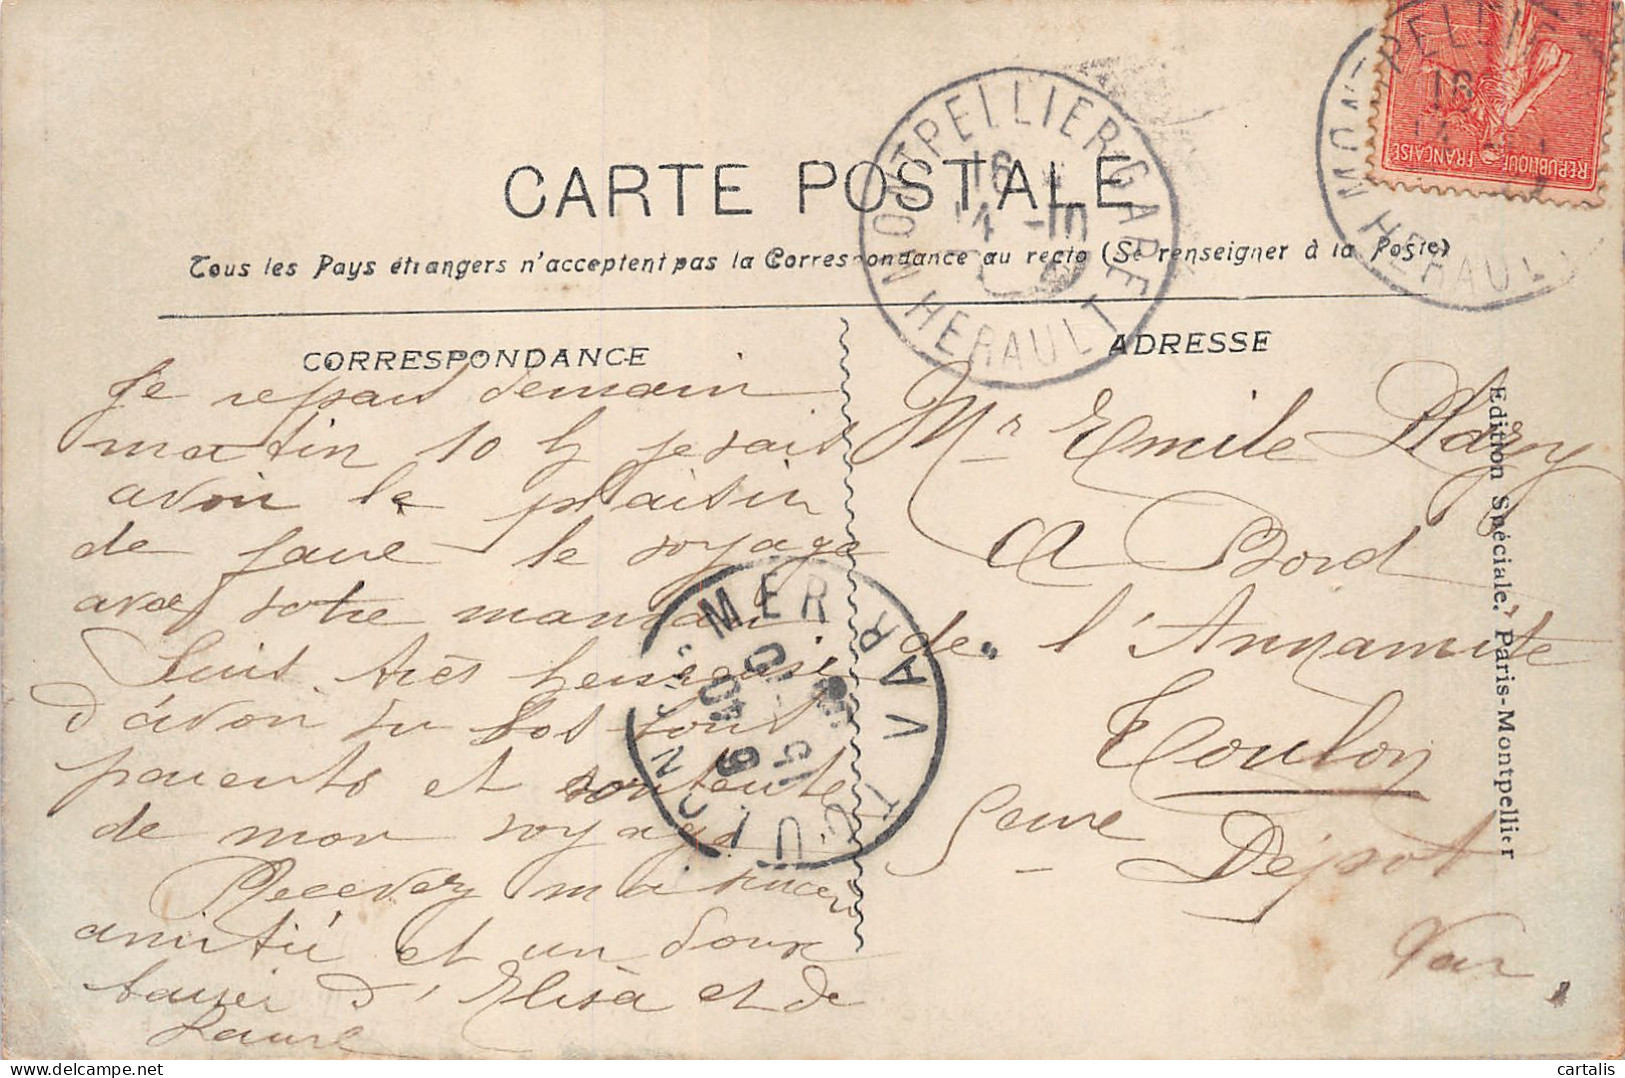 CARTE POSTALE
Tous les Pays étrangers n'acceptent pas la Correspondance au recto (Se renseigner à la Poste)
CORRESPONDANCE
Je repars demain
matin 10 h je vais
avoir le plaisir
de faire le voyage
avec votre maman
Suis très heureuse
d'avoir vu vos
parents et contente
de mon voyage
Recevez ma sincère
amitié et un doux
baiser d'Elisa et de
Laure
ADRESSE
Mr Emile
A Bord
de l'Annamite
Toulon
Dépot
Var
Edition Spéciale, Paris-Montpellier
MONTPELLIER-GARE
16
HERAULT
REPUBLIQUE FRANCAISE
16
HERAULT
MER
VAR
cartalis